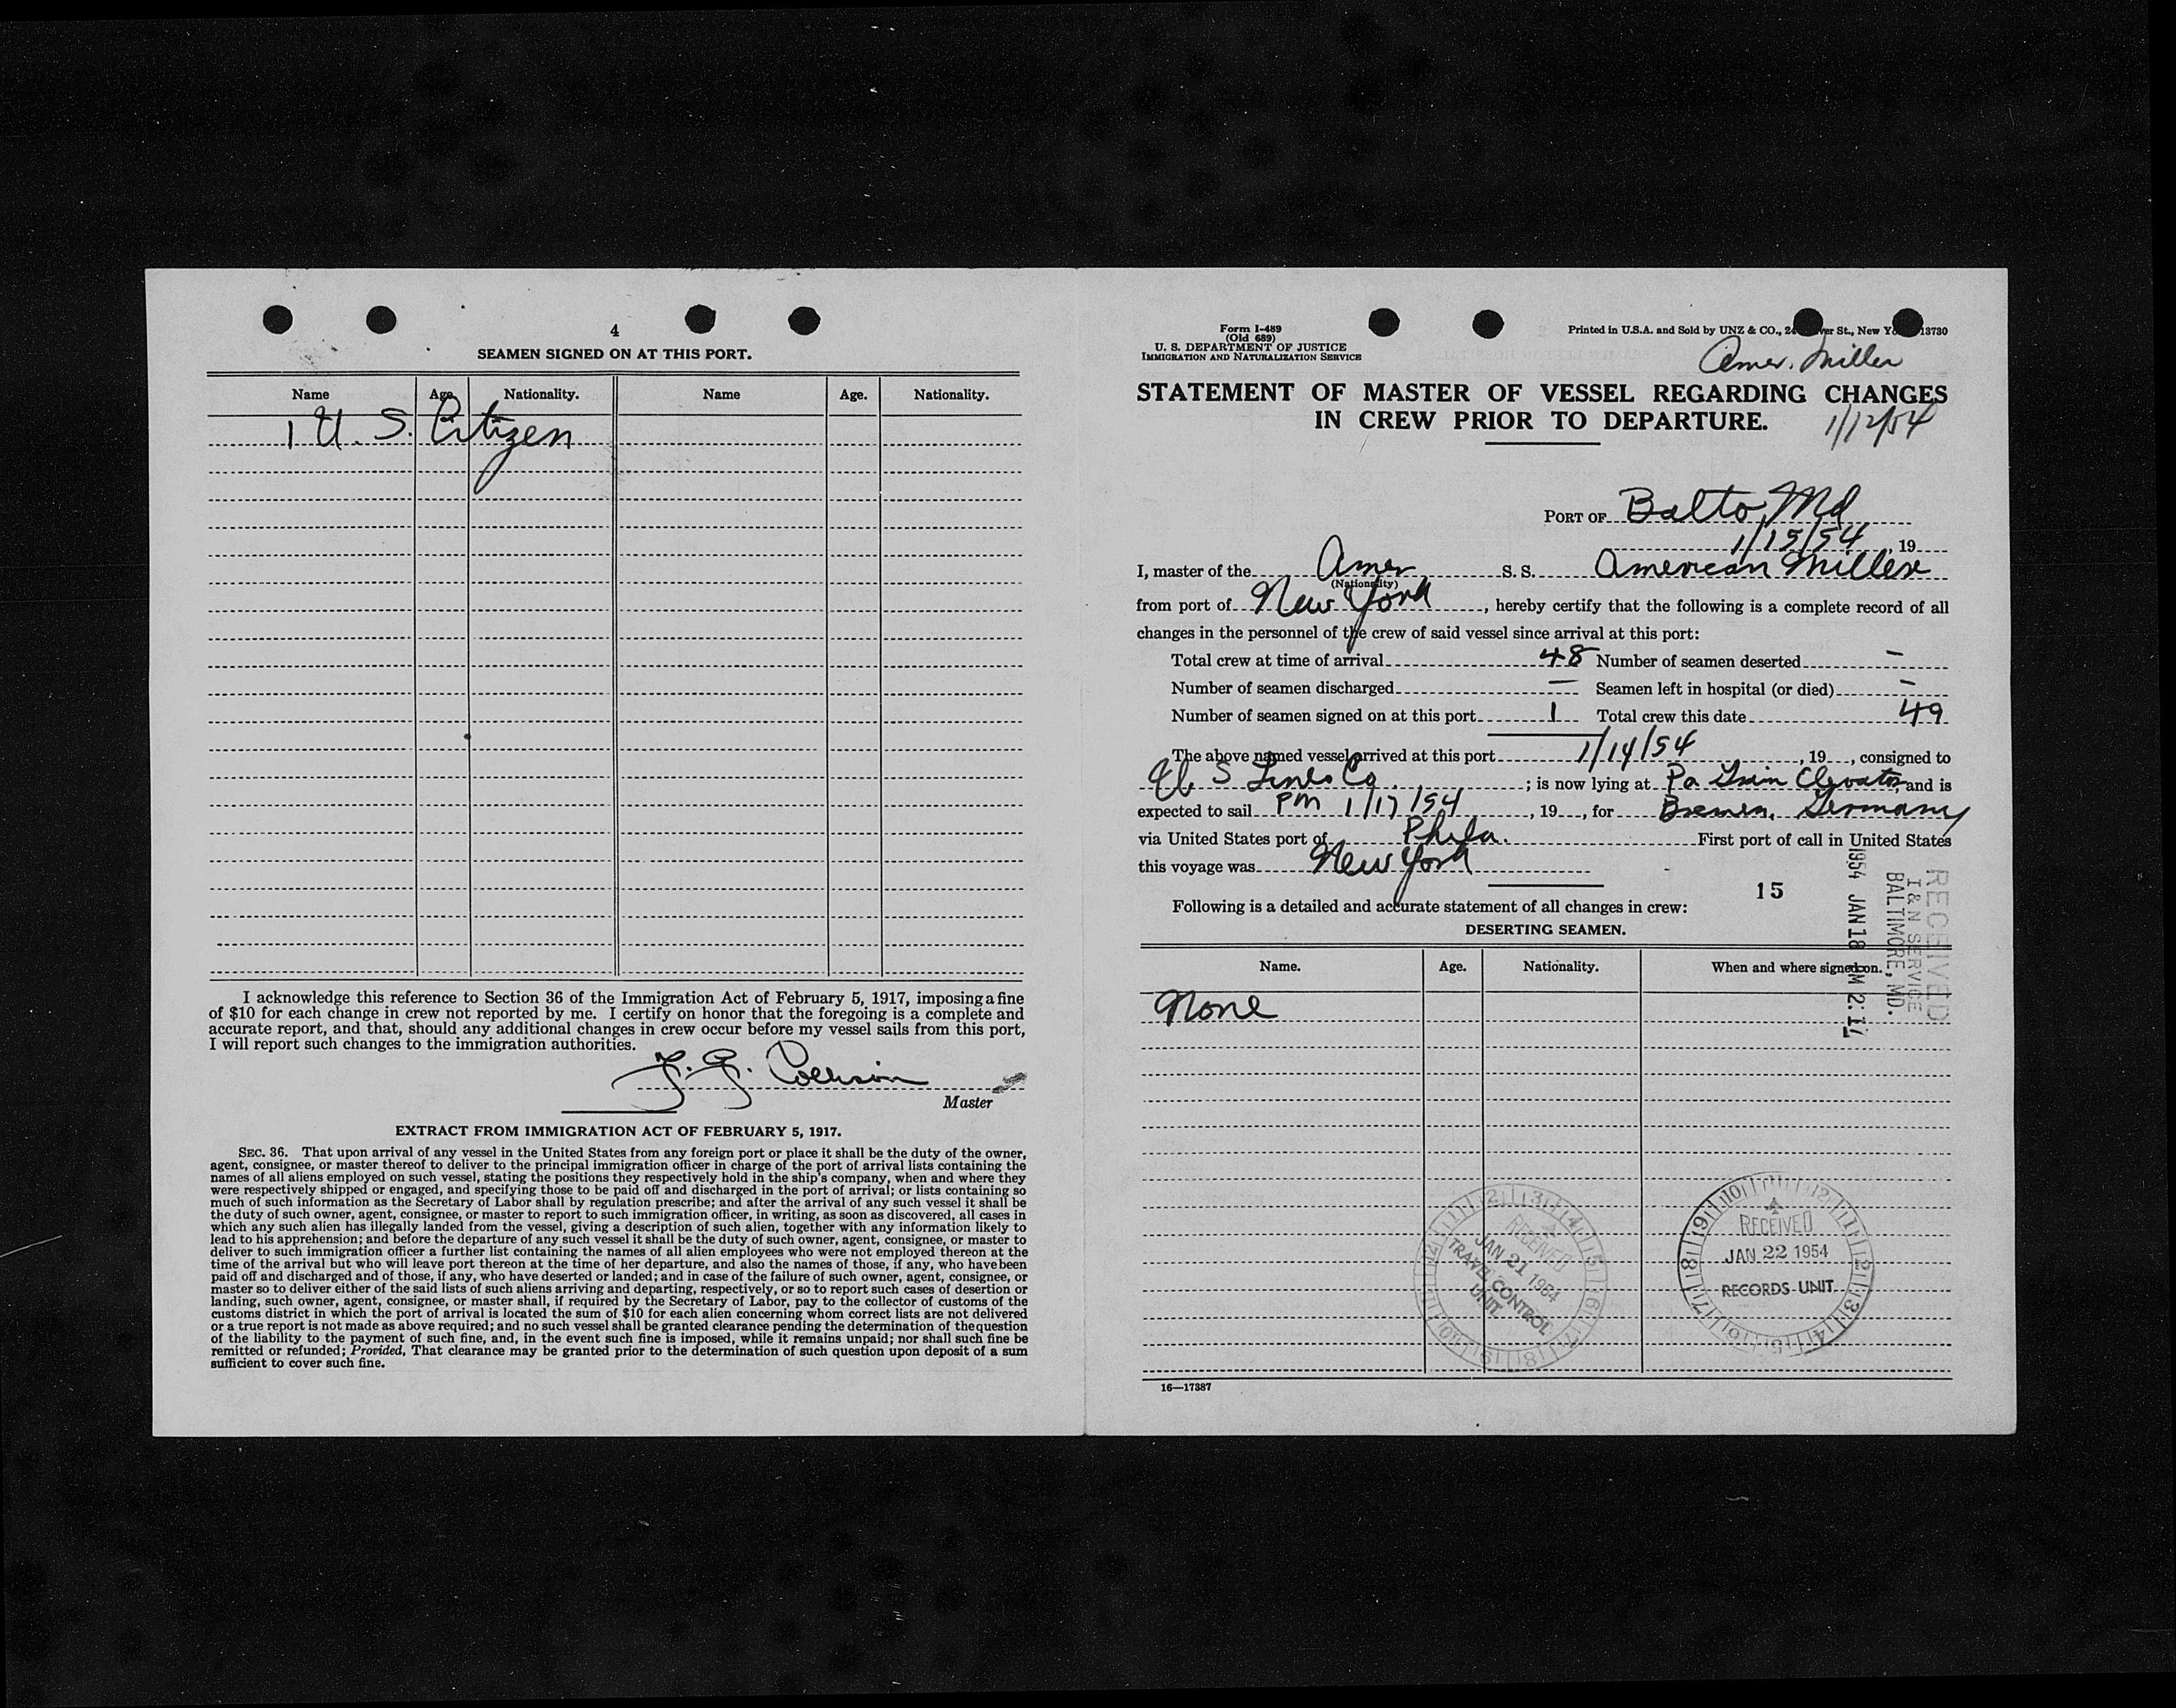 4
SEAMEN SIGNED ON AT THIS PORT.
Name Age. Nationality. Name Age. Nationality.
1 U. S. Citizen
I acknowledge this reference to Section 36 of the Immigration Act of February 5, 1917, imposing a fine
of $10 for each change in crew not reported by me. I certify on honor that the foregoing is a complete and
accurate report, and that, should any additional changes in crew occur before my vessel sails from this port,
I will report such changes to the immigration authorities.
Master
EXTRACT FROM IMMIGRATION ACT OF FEBRUARY 5, 1917.
SEC. 36. That upon arrival of any vessel in the United States from any foreign port or place it shall be the duty of the owner,
agent, consignee, or master thereof to deliver to the principal immigration officer in charge of the port of arrival lists containing the
names of all aliens employed on such vessel, stating the positions they respectively hold in the ship's company, when and where they
were respectively shipped or engaged, and specifying those to be paid off and discharged in the port of arrival; or lists containing so
much of such information as the Secretary of Labor shall by regulation prescribe; and after the arrival of any such vessel it shall be
the duty of such owner, agent, consignee, or master to report to such immigration officer, in writing, as soon as discovered, all cases in
which any such alien has illegally landed from the vessel, giving a description of such alien, together with any information likely to
lead to his apprehension; and before the departure of any such vessel it shall be the duty of such owner, agent, consignee, or master to
deliver to such immigration officer a further list containing the names of all alien employees who were not employed thereon at the
time of the arrival but who will leave port thereon at the time of her departure, and also the names of those, if any, who have been
paid off and discharged and of those, if any, who have deserted or landed; and in case of the failure of such owner, agent, consignee, or
master so to deliver either of the said lists of such aliens arriving and departing, respectively, or so to report such cases of desertion or
landing, such owner, agent, consignee, or master shall, if required by the Secretary of Labor, pay to the collector of customs of the
customs district in which the port of arrival is located the sum of $10 for each alien concerning whom correct lists are not delivered
or a true report is not made as above required; and no such vessel shall be granted clearance pending the determination of the question
of the liability to the payment of such fine, and, in the event such fine is imposed, while it remains unpaid; nor shall such fine be
remitted or refunded; Provided, That clearance may be granted prior to the determination of such question upon deposit of a sum
sufficient to cover such fine.
Form I-489
(Old 689)
U. S. DEPARTMENT OF JUSTICE
IMMIGRATION AND NATURALIZATION SERVICE
Printed in U.S.A. and Sold by UNZ & CO., St., New 13730
Amer. Miller
STATEMENT OF MASTER OF VESSEL REGARDING CHANGES
IN CREW PRIOR TO DEPARTURE.
1/12/54
PORT OF Balto, Md
1/15/54, 19
I, master of the Amer S. S. American Miller
(Nationality)
from port of New York, hereby certify that the following is a complete record of all
changes in the personnel of the crew of said vessel since arrival at this port:
Total crew at time of arrival 48 Number of seamen deserted –
Number of seamen discharged – Seamen left in hospital (or died) –
Number of seamen signed on at this port 1 Total crew this date 49
The above named vessel arrived at this port 1/14/54, 19, consigned to
U S Lines Co.; is now lying at Pa Grain Elevator, and is
expected to sail PM 1/17/54, 19, for Bremen, Germany
via United States port of Phila. First port of call in United States
this voyage was New York
15
Following is a detailed and accurate statement of all changes in crew:
RECEIVED
I & N SERVICE
BALTIMORE, MD.
1954 JAN 18 PM 2:17
DESERTING SEAMEN.
Name. Age. Nationality. When and where signed on.
None
RECEIVED
JAN 21 1954
TRAVEL CONTROL
UNIT
RECEIVED
JAN 22 1954
RECORDS UNIT
16—17387